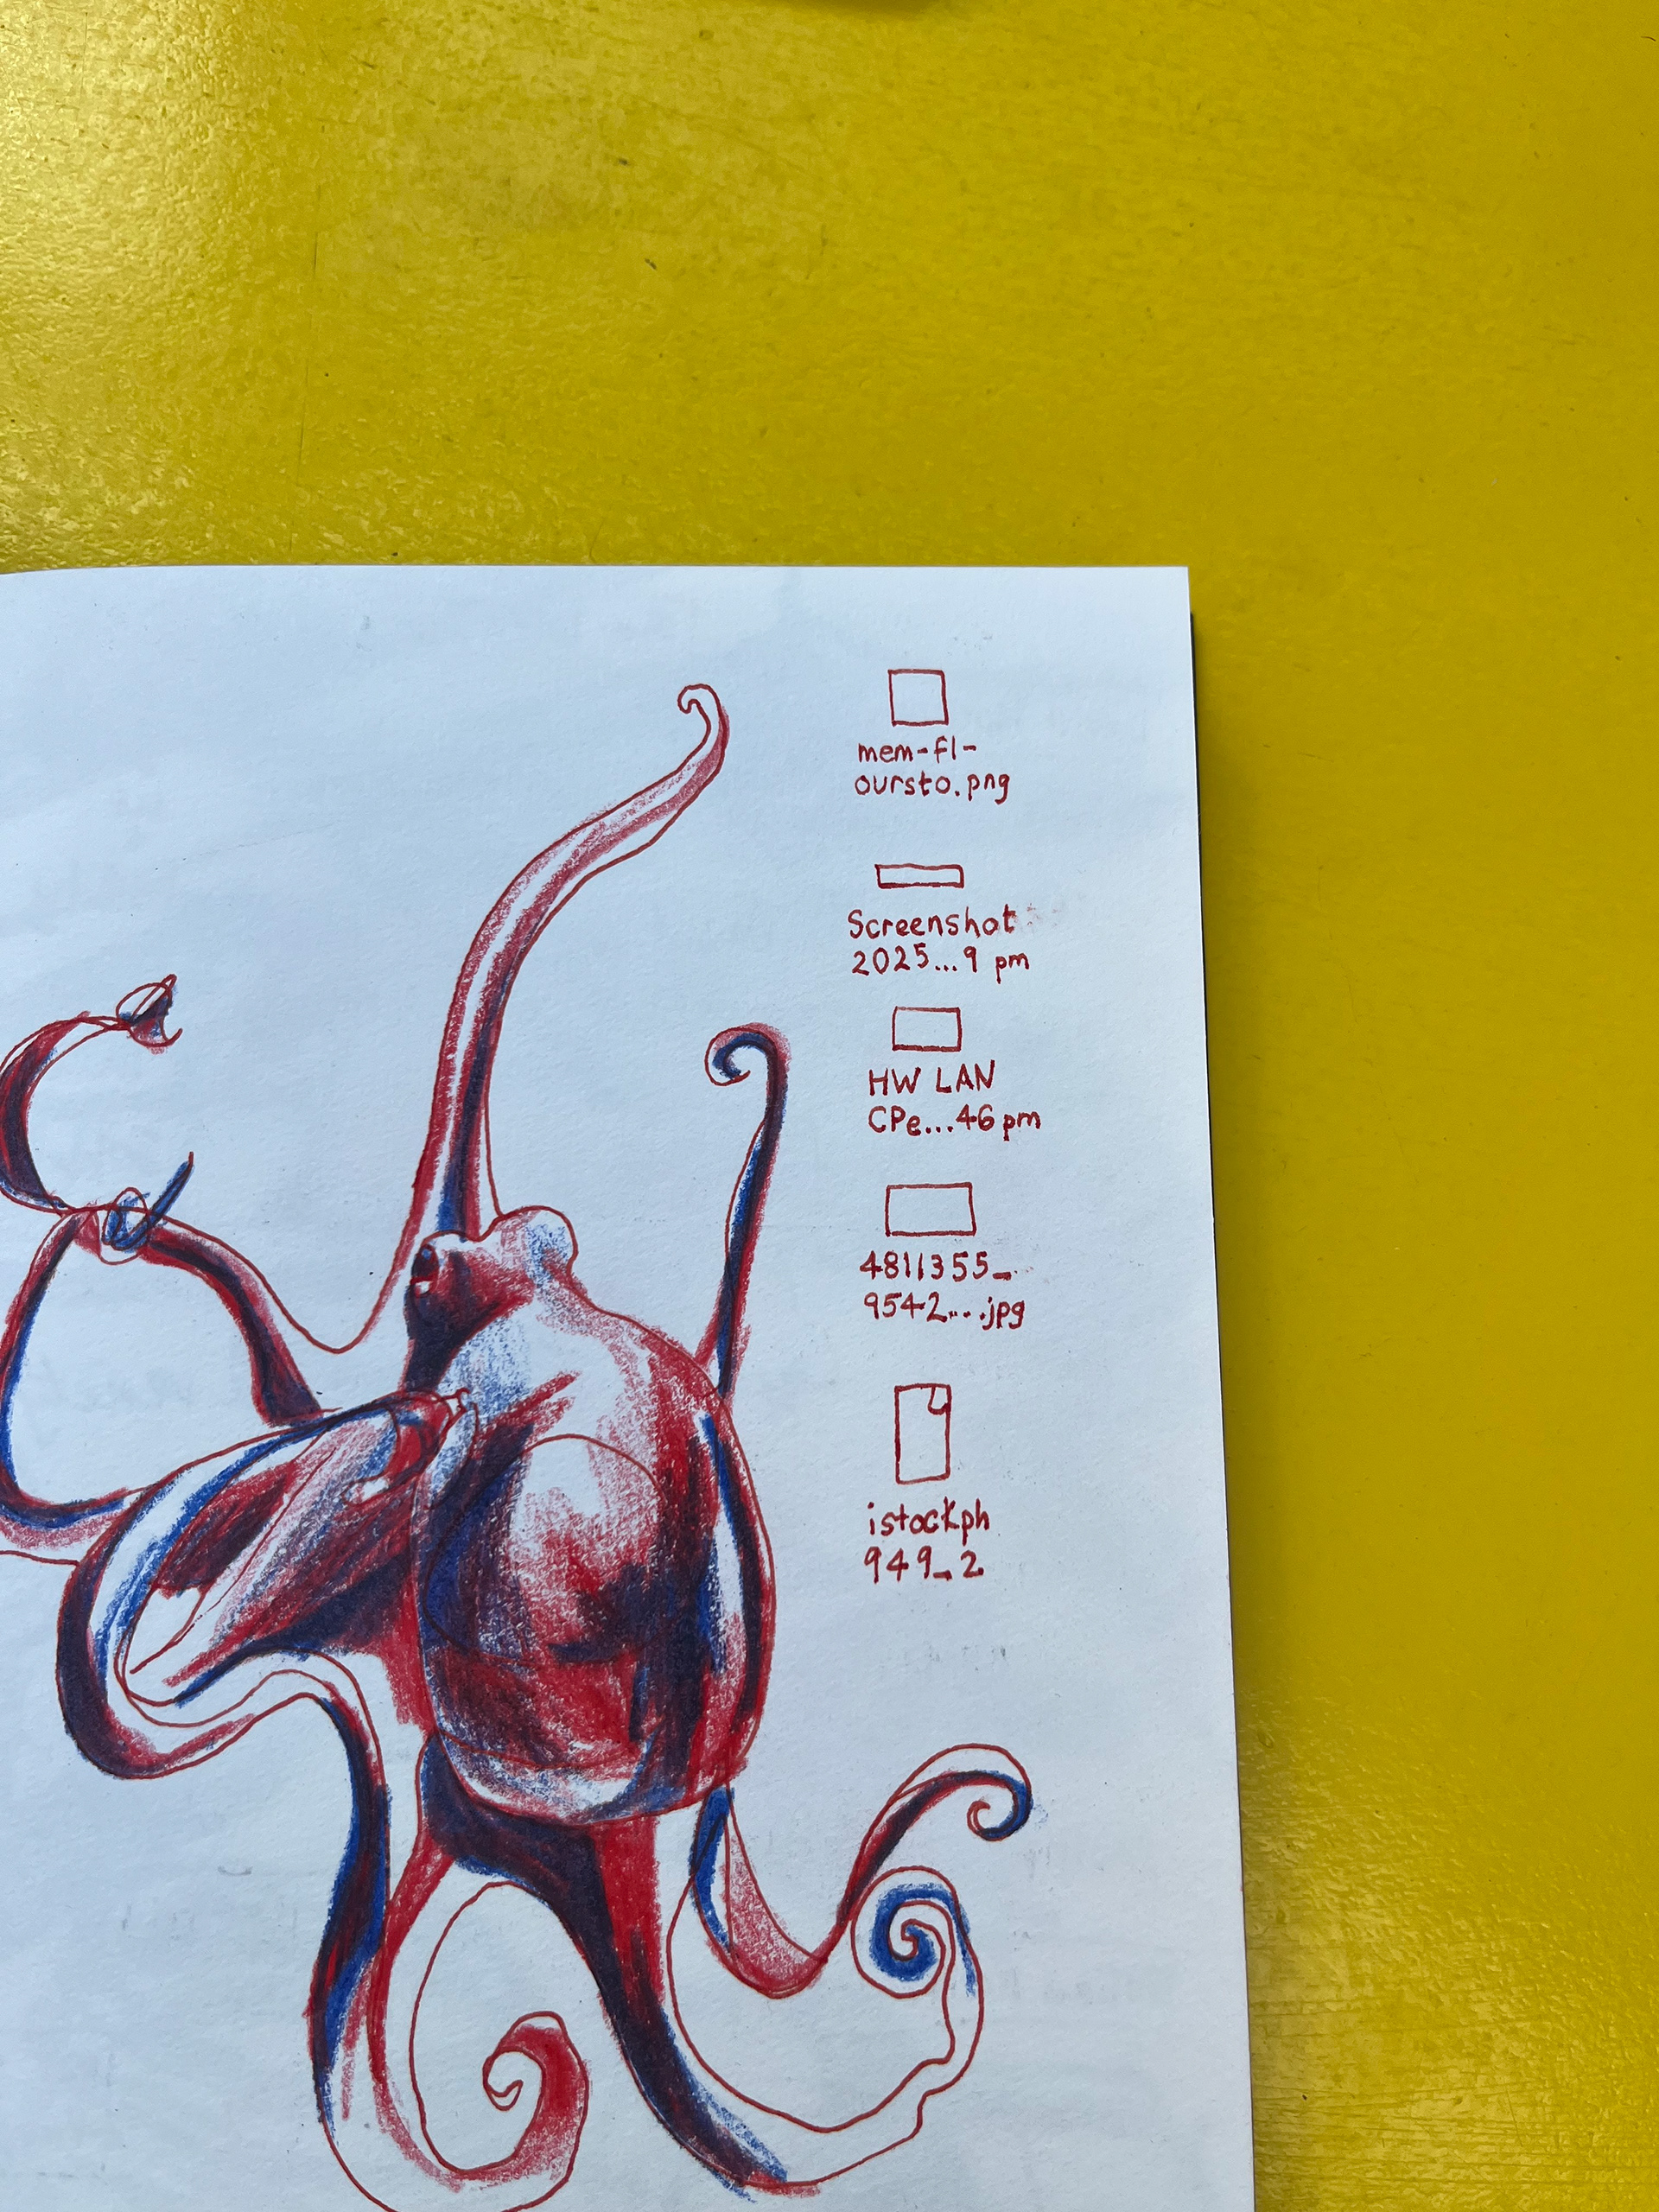 mem-fl-
oursto.png
Screenshot
2025...9 pm
HW LAN
CPe...46 pm
4811355_
9542....jpg
istockph
949_2